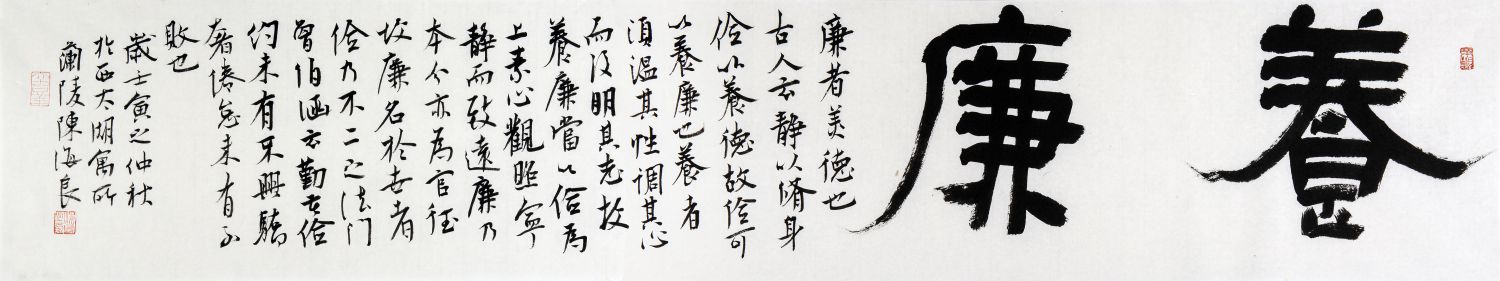 養廉
廉者美德也
古人云静以脩身
儉以養德故儉可
以養廉也養者
須温其性调其心
而后明其志故
養廉當以儉為
上素心觀照寧
静而致遠廉乃
本分亦為官従
政廉名於世者
儉乃不二之法门
曾伯涵云勤苦儉
约未有不興驕
奢倦怠未有不
敗也
歲壬寅之仲秋
於西太湖寓所
蘭陵陳海良